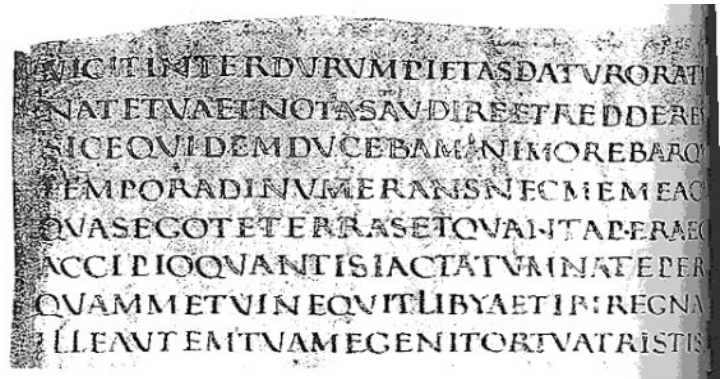 VICITINTERDVRVMPIETASDATVRORAT
NATETVAETNOTASAVDIREETREDDERE
SICEQVIDEMDVCEBAMANIMOREBARQ
TEMPORADINVMERANSNECMEMEAC
QVASEGOTETERRASETQVANTAPERAEQ
ACCIPIOQVANTISIACTATVMNATEPER
QVAMMETVINEQVITLIBYAETIBIREGNA
ILLEAVTEMTVAMEGENITORTVATRISTIS